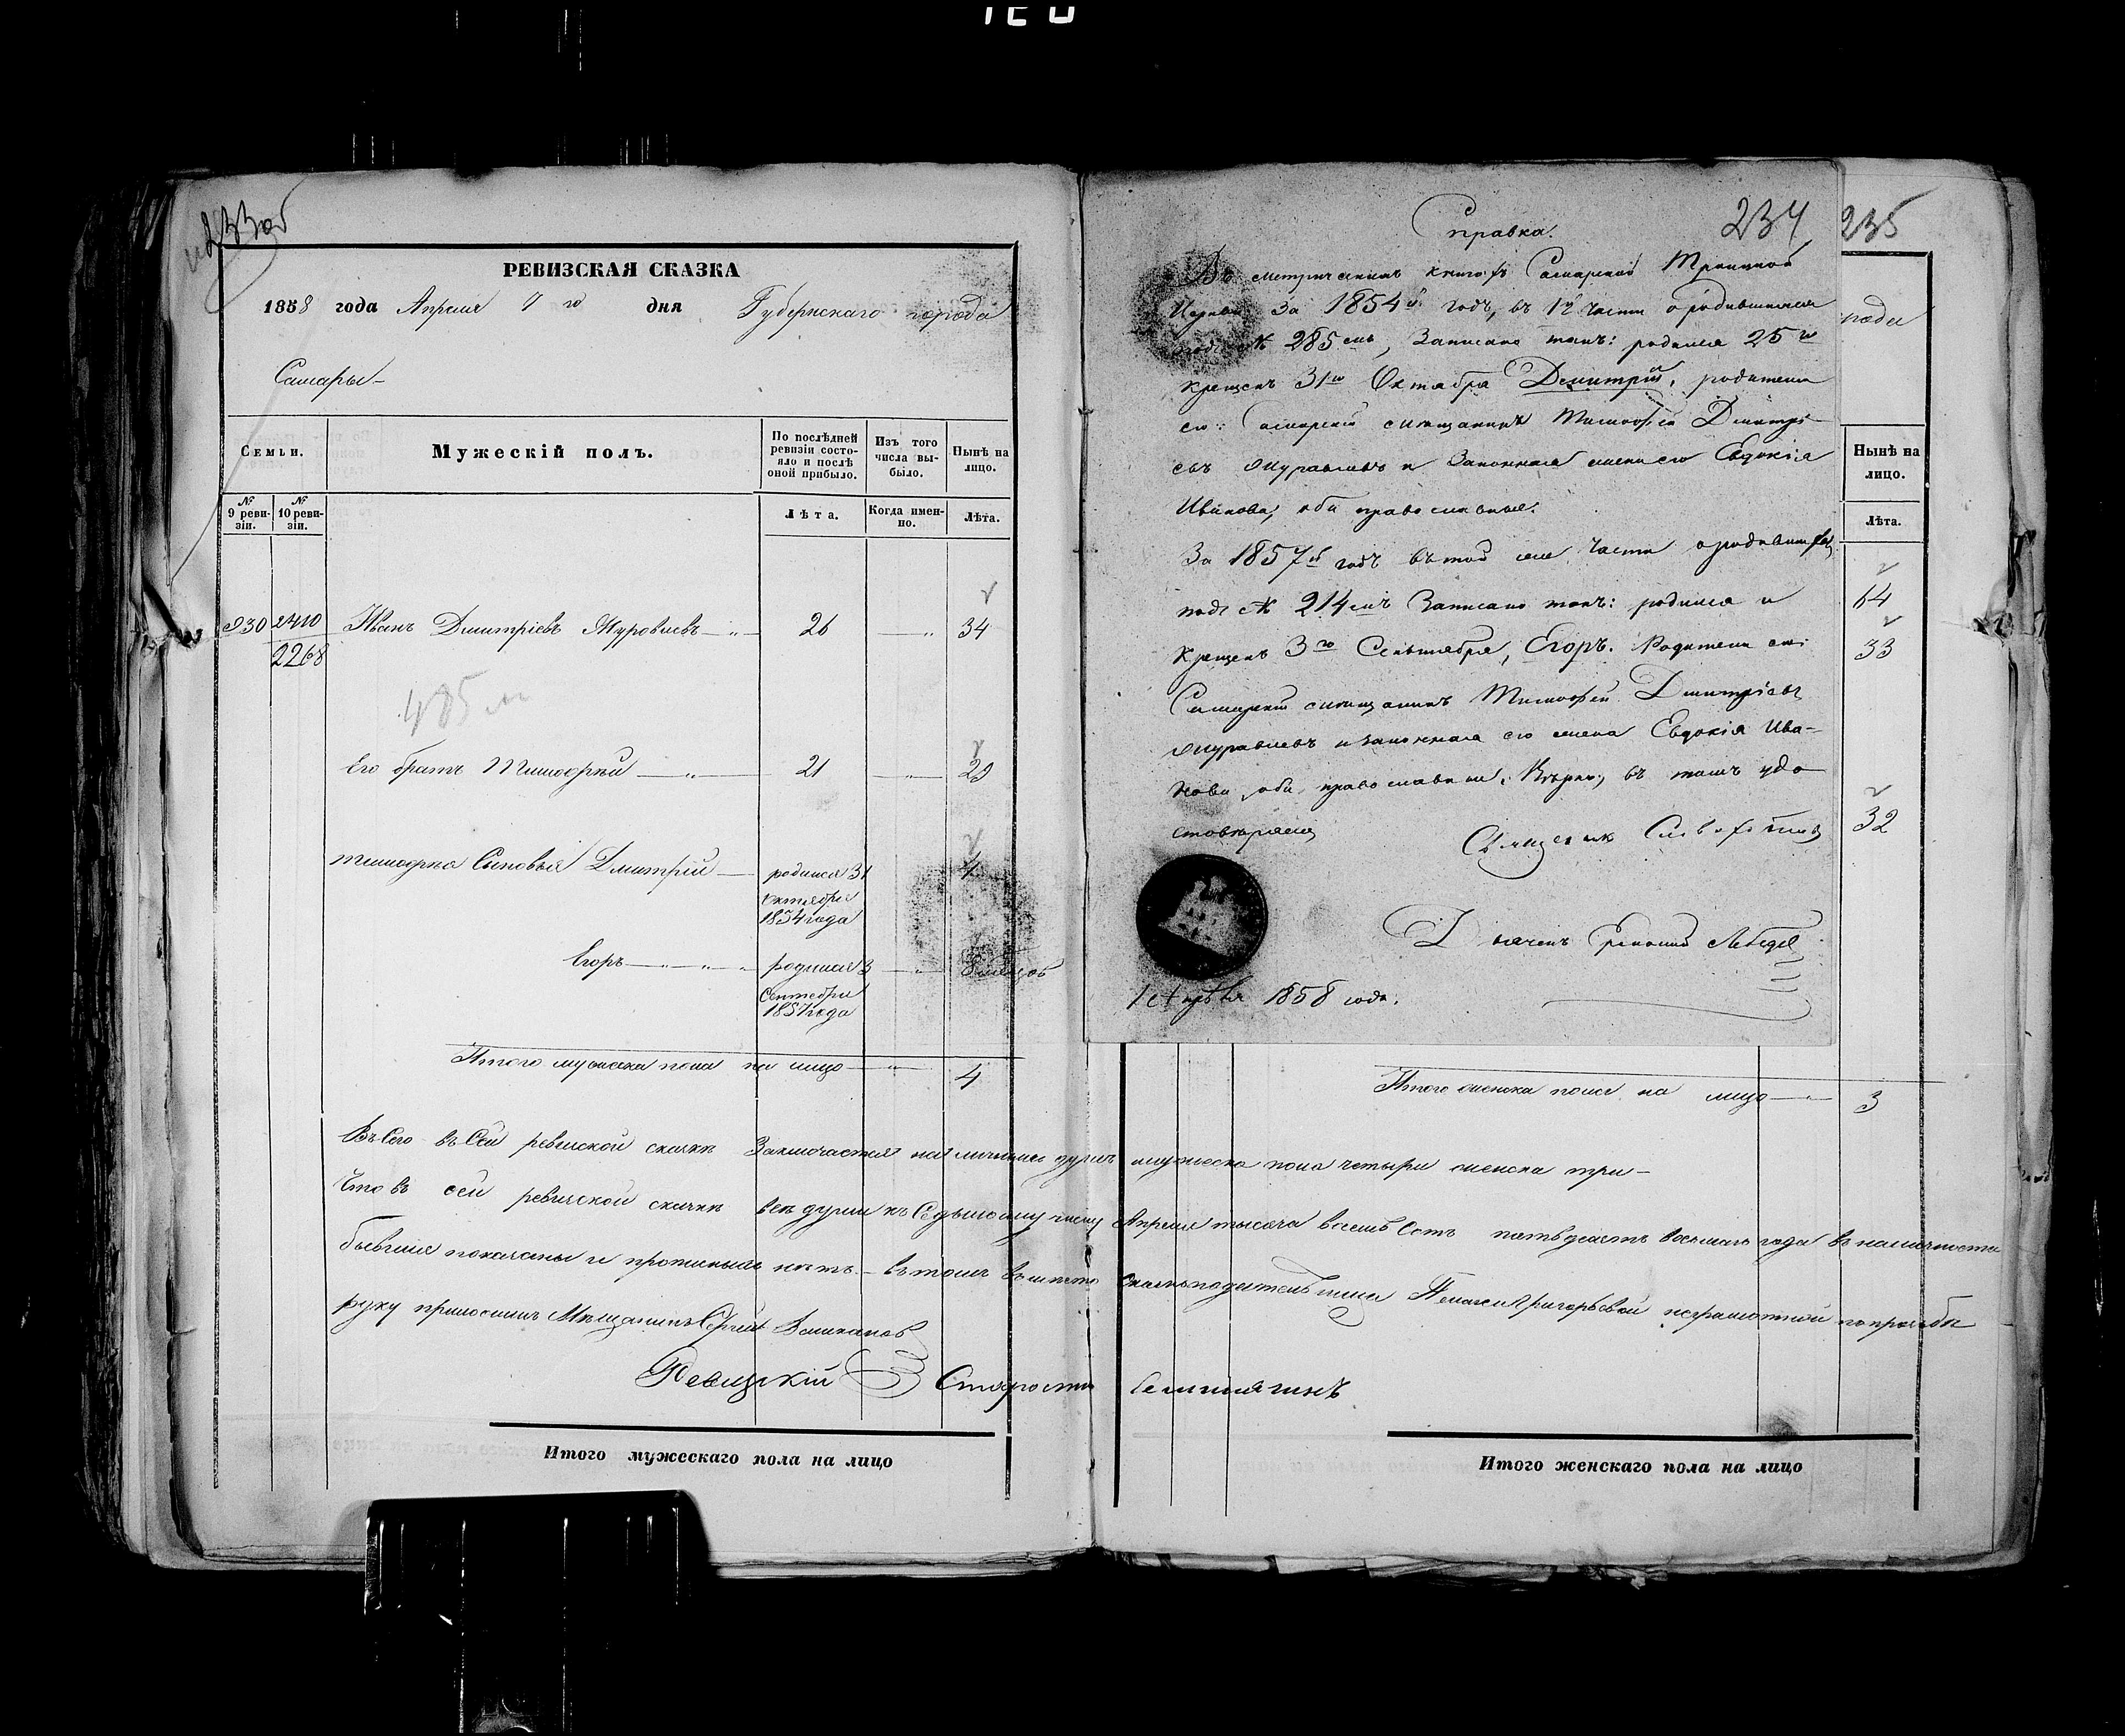 233об
РЕВИЗСКАЯ СКАЗКА
1858 года Апреля 7го дня Губернскаго города
Самары
Семьи.
Мужескій полъ.
По послѣдней ревизіи состояло и послѣ оной прибыло.
Изъ того числа выбыло.
Нынѣ на лицо.
№ 9 ревизіи.
№ 10 ревизіи.
Лѣта.
Когда именно.
Лѣта.
930 2410 Иванъ Дмитріевъ Муровлевъ 26 34
2268
485
Его братъ Тимофей 21 29
Тимофея Сыновья Дмитрій родился 31 Октября 1854 года 4
Егоръ родился 3 Сентября 1857 года
Итого мужеска пола на лицо 4
Итого мужескаго пола на лицо
234
Справка.
Въ метрическихъ книгахъ Самарской Троицкой
Церкви за 1854й годъ, въ 1й части о родившихся
подъ № 285мъ, Записано такъ: родился 25го
крещенъ 31го Октября Дмитрій, родители
его: Самарскій мѣщанинъ Тимофей Дмитрі-
евъ Журавлевъ и Законная жена его Евдокія
Иванова, оба православные.
За 1857й годъ въ той же части о родившихся
подъ № 214мъ Записано такъ: родился и
Крещенъ 3го Сентября, Егоръ. Родители его:
Самарскій мѣщанинъ Тимофей Дмитріевъ
Журавлевъ и законная его жена Евдокія Ива-
нова, оба православные. Вѣрно, въ томъ удо
стовѣряемъ
Священник
Діаконъ Лебедев
1 Апрѣля 1858 года.
235
города
Нынѣ на лицо.
Лѣта.
64
33
32
Итого женска пола на лицо 3
Всего въ Сей ревизской сказкѣ Заключается наличныхъ душъ мужеска пола четыри женска три
Что въ сей ревизской сказкѣ всѣ души къ Седьмому числу Апреля тысяча восемь Сотъ пятьдесятъ восьмаго года въ наличности
бывшие показаны и прописныхъ нѣтъ въ томъ вместо Сказкоподательницы Пелагеи Григорьевой неграмотной по прозьбѣ
руку приложилъ Мѣщанинъ Сергѣй
Ревизскій Староста
Итого женскаго пола на лицо